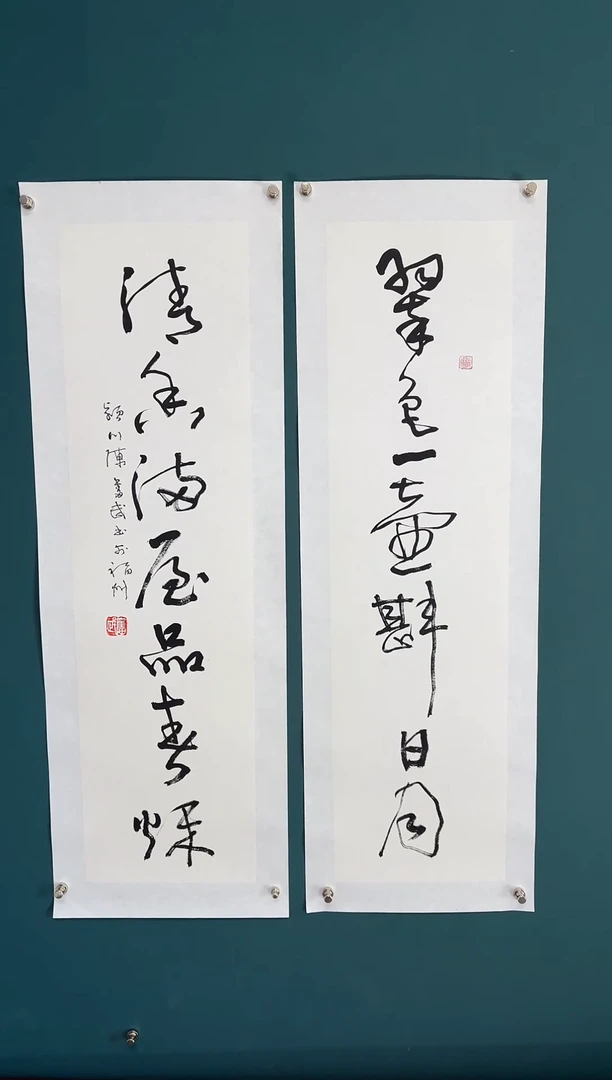 翠色一壶斟日月
清香满屋品春秌
颖川陈书武书于福州